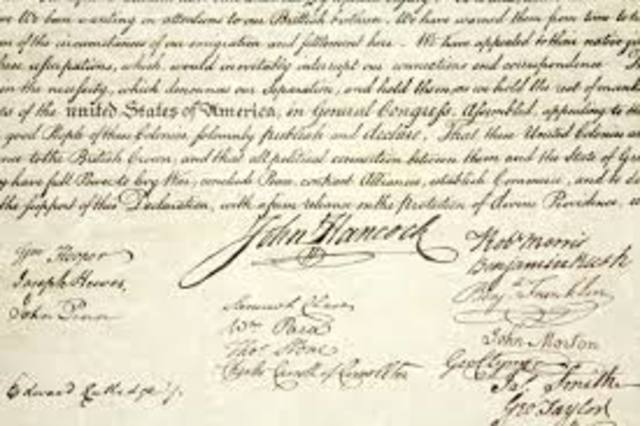 We been wanting in attentions to our Brittish brethren. We have warned them from time to
of the circumstances of our emigration and settlement here. We have appealed to their native
these usurpations, which, would inevitably interrupt our connections and correspondence.
in the necessity, which denounces our Separation, and hold them, as we hold the rest of
of the united States of America, in General Congress, Assembled, appealing to the
good People of these Colonies, solemnly publish and declare, That these United Colonies
to the British Crown, and that all political connection between them and the State of
have full Power to levy War, conclude Peace, contract Alliances, establish Commerce, and to
the support of this Declaration, with a firm reliance on the Protection of divine Providence,
John Hancock
Wm Hooper
Joseph Hewes,
John Penn
Edward Rutledge
Samuel Chase
Wm Paca
Thos Stone
Charles Carroll of Carrollton
Robt Morris
Benjamin Rush
Benj Franklin
John Morton
Geo Clymer
Jas Smith
Geo Taylor